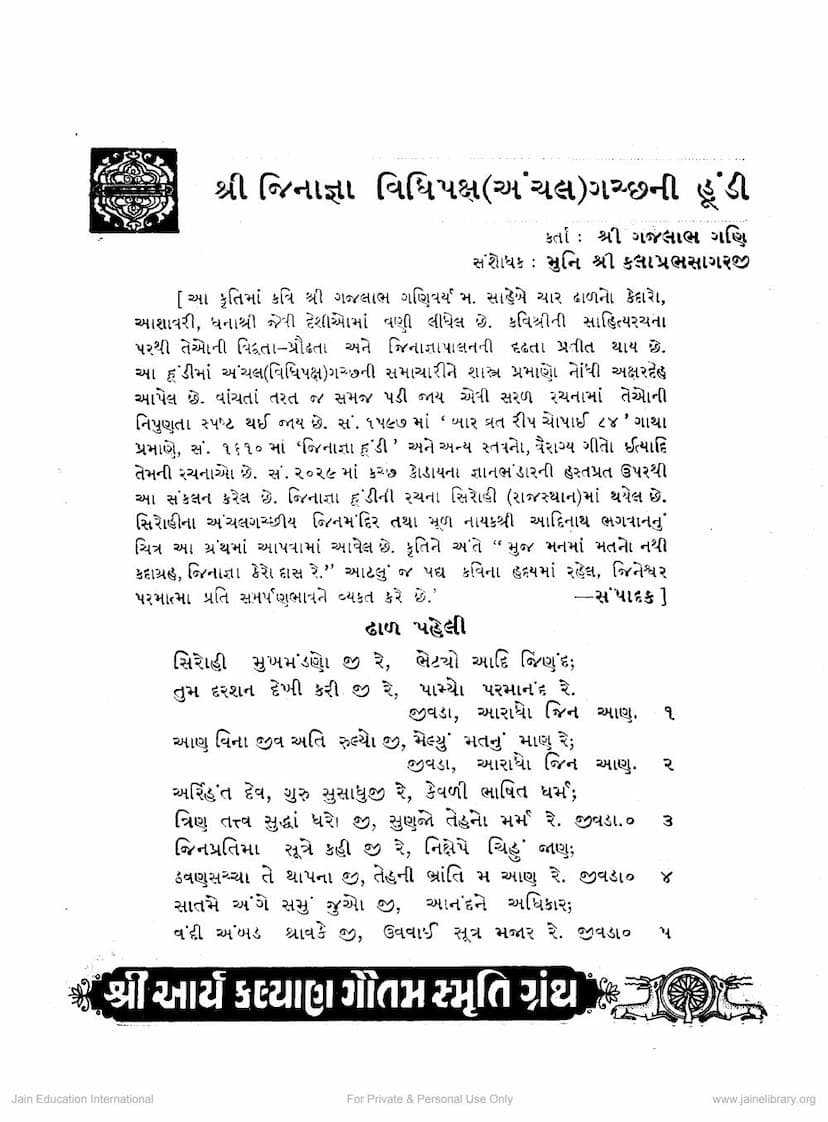 શ્રી જિનાજ્ઞા વિધિપક્ષ(અંચલ)ગચ્છની હૂંડી
કર્તા : શ્રી ગજલાભ ગણિ
સંશોધક : મુનિ શ્રી કલાપ્રભસાગરજી
[ આ કૃતિમાં કવિ શ્રી ગજલાભ ગણિવર્ય મ. સાહેબે ચાર ઢાળનો કેદારો,
આશાવરી, ધનાશ્રી જેવી દેશીઓમાં વણી લીધેલ છે. કવિશ્રીની સાહિત્યરચના
પરથી તેઓની વિદ્વતા–પ્રૌઢતા અને જિનાજ્ઞાપાલનની દૃઢતા પ્રતીત થાય છે.
આ હૂંડીમાં અંચલ(વિધિપક્ષ)ગચ્છની સમાચારીને શાસ્ત્ર પ્રમાણો નોંધી અક્ષરદેહ
આપેલ છે. વાંચતાં તરત જ સમજ પડી જાય એવી સરળ રચનામાં તેઓની
નિપુણતા સ્પષ્ટ થઈ જાય છે. સં. ૧૫૯૭ માં ‘ બાર વ્રત રીપ ચોપાઈ ૮૪ ’ ગાથા
પ્રમાણે, સં. ૧૬૧૦ માં ‘જિનાજ્ઞા હૂંડી ’ અને અન્ય સ્તવનો, વૈરાગ્ય ગીતો ઈત્યાદિ
તેમની રચનાઓ છે. સં. ૨૦૨૯ માં કચ્છ કોડાયના જ્ઞાનભંડારની હસ્તપ્રત ઉપરથી
આ સંકલન કરેલ છે. જિનાજ્ઞા હૂંડીની રચના સિરોહી (રાજસ્થાન)માં થયેલ છે.
સિરોહીના અંચલગચ્છીય જિનમંદિર તથા મૂળ નાયકશ્રી આદિનાથ ભગવાનનું
ચિત્ર આ ગ્રંથમાં આપવામાં આવેલ છે. કૃતિને અંતે “ મુજ મનમાં મતનો નથી
કદાગ્રહ, જિનાજ્ઞા કેરો દાસ રે.” આટલું જ પદ્ય કવિના હૃદયમાં રહેલ, જિનેશ્વર
પરમાત્મા પ્રતિ સમર્પણભાવને વ્યક્ત કરે છે.’ —સંપાદક ]
ઢાળ પહેલી
સિરોહી મુખમંડણો જી રે, ભેટ્યો આદિ જિણંદ;
તુમ દરશન દેખી કરી જી રે, પામ્યો પરમાનંદ રે.
જીવડા, આરાધો જિન આણ. ૧
આણ વિના જીવ અતિ રુલ્યો જી, મેલ્યું મતનું માણ રે;
જીવડા, આરાધો જિન આણ. ૨
અરિંહંત દેવ, ગુરુ સુસાધુજી રે, કેવળી ભાષિત ધર્મ;
ત્રિણ તત્ત્વ સુદ્ધાં ધરો જી, સુણજો તેહનો મર્મ રે. જીવડા.૦ ૩
જિનપ્રતિમા સૂત્રે કહી જી રે, નિક્ષેપે ચિહું જાણ;
ઠવણસચ્ચા તે થાપના જી, તેહની ભ્રાંતિ મ આણ રે. જીવડા૦ ૪
સાતમે અંગે સમું જુઓ જી, આનંદને અધિકાર;
વંદી અંબડ શ્રાવકે જી, ઉવવાઈ સૂત્ર મજાર રે. જીવડા૦ ૫
શ્રી આર્ય કલ્યાણ ગૌતમ સ્મૃતિ ગ્રંથ
Jain Education International For Private & Personal Use Only www.jainelibrary.org